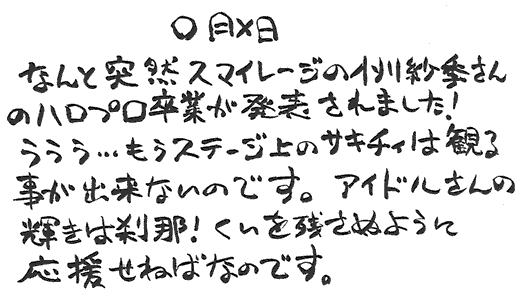 ○月×日
なんと突然スマイレージの小川紗季さん
のハロプロ卒業が発表されました!
ううう…もうステージ上のサキチィは観る
事が出来ないのです。アイドルさんの
輝きは刹那!くいを残さぬように
応援せねばなのです。